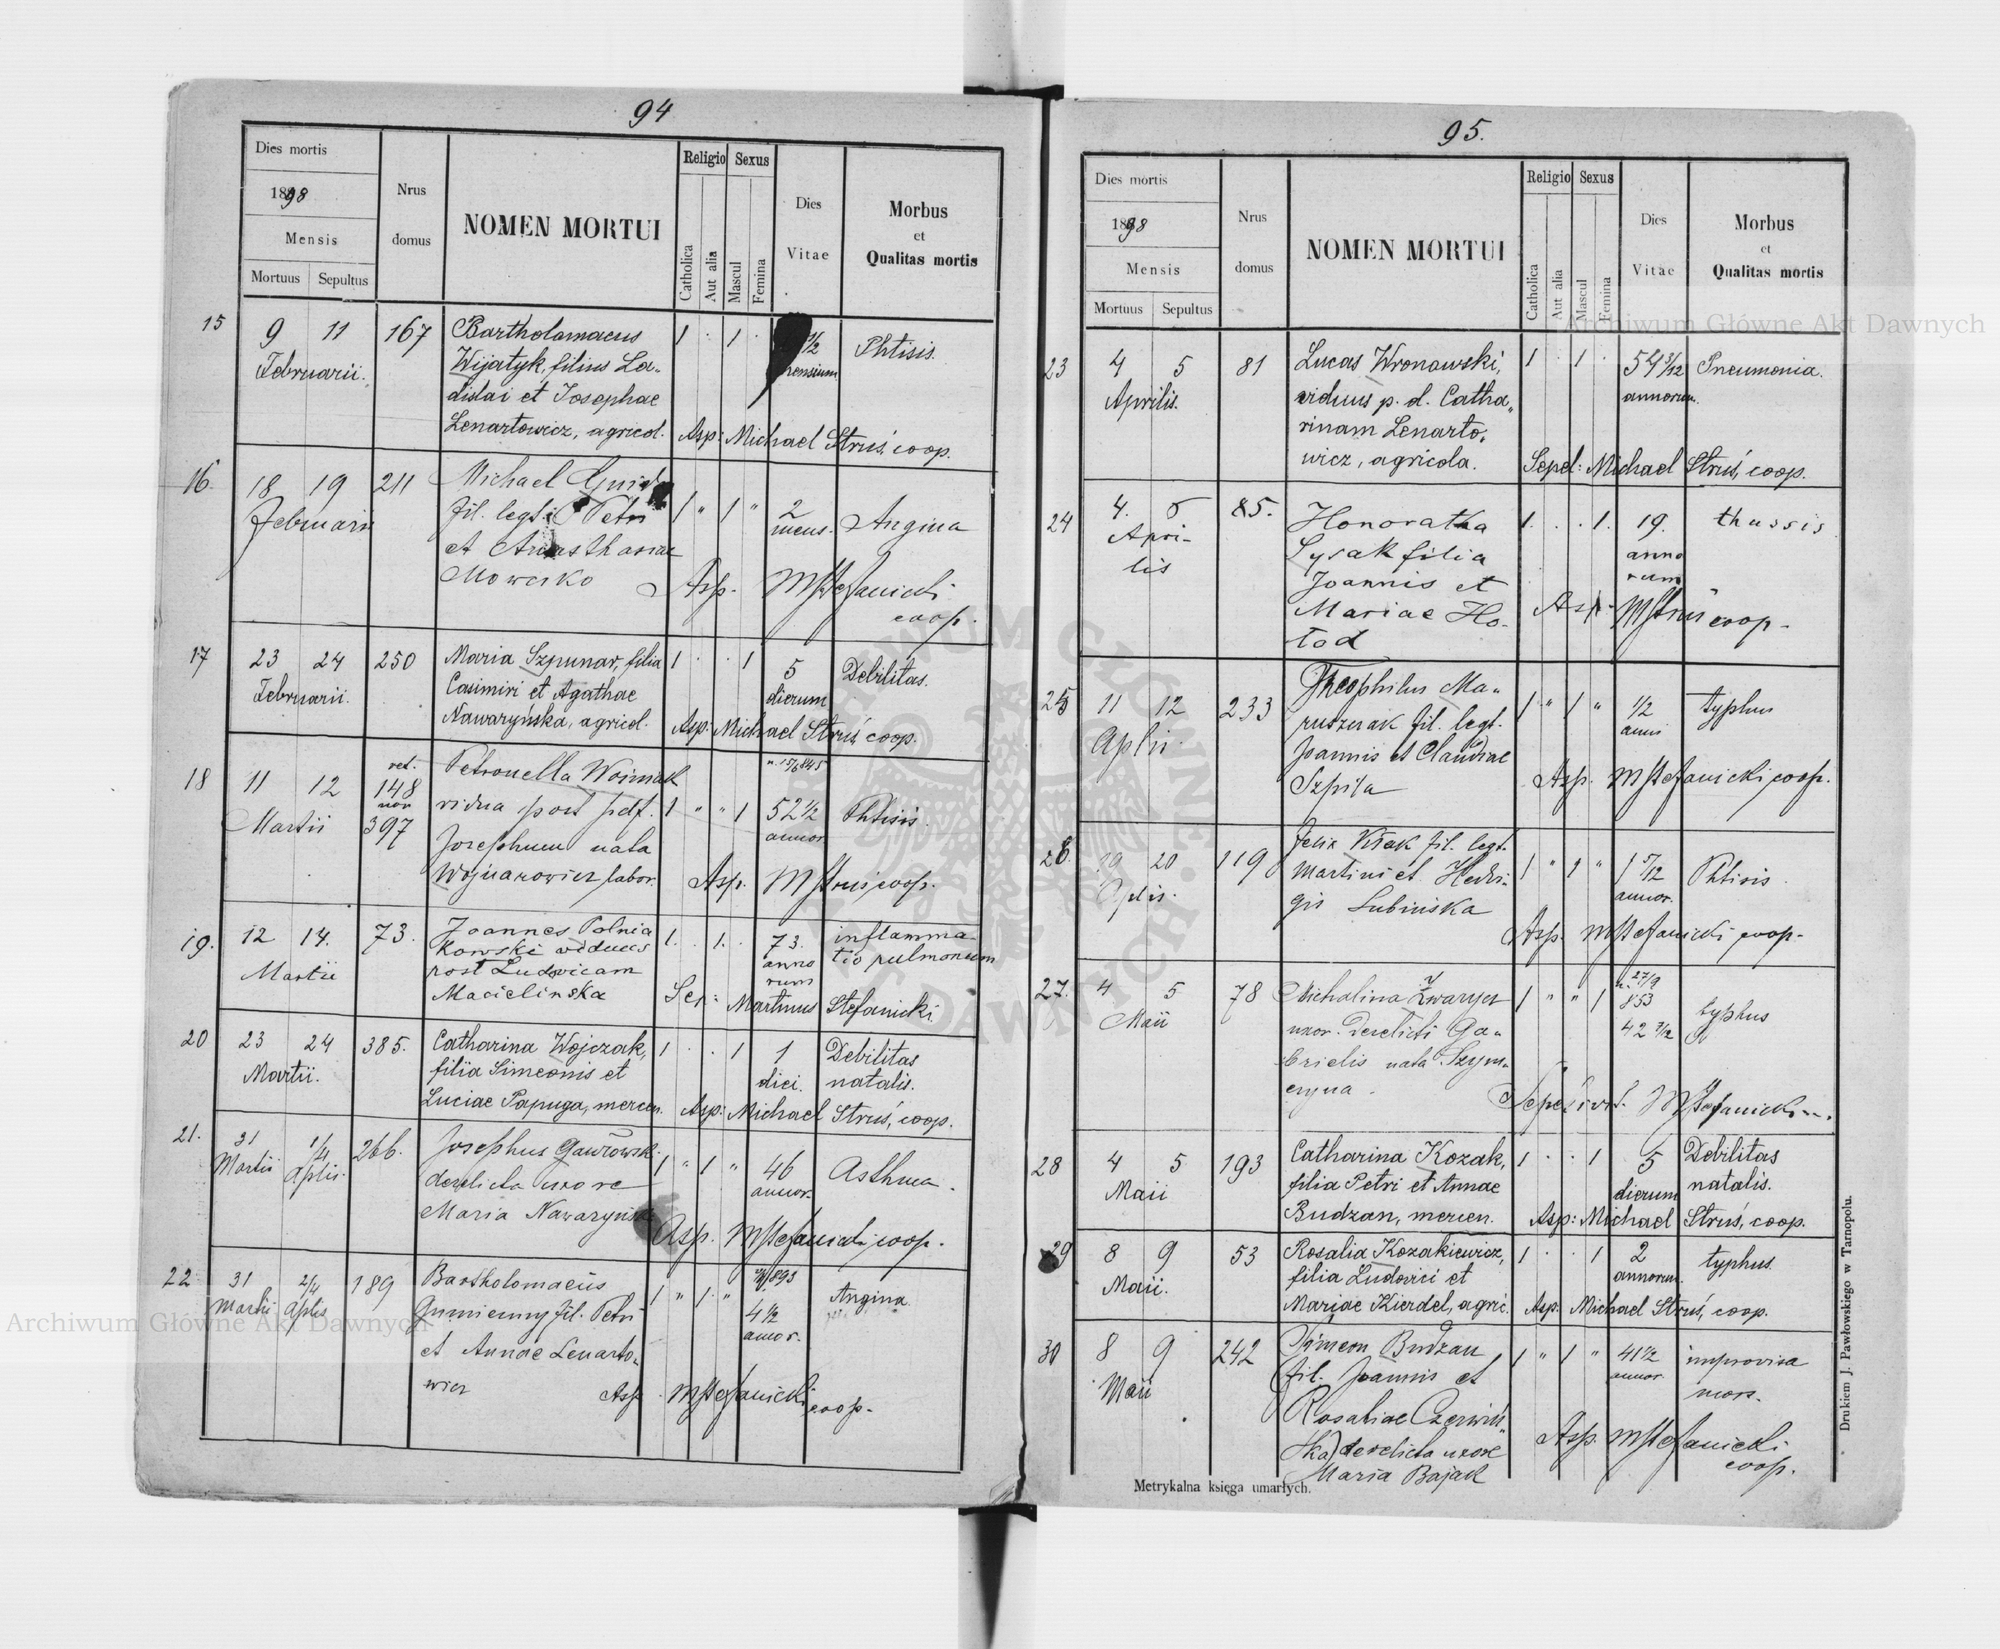 94
Dies mortis
1898
Mensis
Mortuus Sepultus
Nrus
domus
NOMEN MORTUI
Religio Sexus
Catholica
Aut alia
Mascul
Femina
Dies
Vitae
Morbus
et
Qualitas mortis
15 9 11 167 Bartholomaeus 1 · 1 · 1/2 Phtisis.
Februarii. Wijatyk, filius La- mensium
dislai et Josephae
Lenartowicz, agricol. Asp: Michael Struś, coop.
16. 18 19 211 Michael
Februarii fil. legt. Petri 1 " 1 " 2 Angina
et Anasthasiae mens.
Mowczko Asp. MStefanicki
coop.
17 23 24 250 Maria Szpunar, filia 1 · · 1 5 Debilitas.
Februarii. Casimiri et Agathae dierum
Nawaryńska, agricol. Asp: Michael Struś, coop.
18 11 12 ret. 148 non 397 Petronella Woźniak
Martii vidua post pdf. 1 " " 1 52 1/2 Phtisis.
Josephum nata annor
Wojnarowicz labor. Asp. MStruś coop.
19. 12 14. 73. Joannes Polnia 1. · 1. · 73. inflamma-
Martii kowski viduus anno tio pulmonum
post Ludovicam rum
Macielinska Sep: Martinus Stefanicki
20 23 24 385. Catharina Wojczak, 1 · · 1 1 Debilitas
Martii. filia Simeonis et diei. natalis.
Luciae Papuga, mercen. Asp: Michael Struś, coop.
21. 31 1/4 266. Josephus Gawłowski
Martii Aplis. derelicta uxore 1 " 1 " 46 Asthma.
Maria Nawaryńska annor.
Asp. MStefanicki coop.
22 31 2/4 189 Bartholomaeus
Martii Aplis Gumienny fil. Petri 1 " 1 " 4 1/2 Angina.
et Annae Lenarto- annor.
wicz Asp. MStefanicki
coop.
95.
Dies mortis
1898
Mensis
Mortuus Sepultus
Nrus
domus
NOMEN MORTUI
Religio Sexus
Catholica
Aut alia
Mascul
Femina
Dies
Vitae
Morbus
et
Qualitas mortis
23 4 5 81 Lucas Wronowski, 1 · 1 · 54 3/12 Pneumonia.
Aprilis. viduus p. d. Catha" annorum.
rinam Lenarto-
wicz, agricola. Sepel: Michael Struś, coop.
24 4. 6 85. Honoratha 1. · · 1. 19. thussis
Apri- Sysak filia anno
lis Joannis et rum
Mariae Ho- Asp. MStruś coop.
łod
25 11 12 233 Theophilus Ma- 1 " 1 " 1/2 typhus
Aplis. ruszczak fil. legt. anni
Joannis et Claudiae
Szpila Asp. MStefanicki coop.
26. 19 20 119 Felix Ktłak fil. legt. 1 " 1 " 1 5/12 Phtisis
Aplis. Martini et Hedvi- annor.
gis Lubińska
Asp. MStefanicki coop.
27. 4 5 78 Michalina Zwarycz 1 " " 1 n. 27/9 853 typhus
Maii uxor. derelicti Ga- 42 7/12
brielis nata Szym-
czyna. MStefanicki
28 4 5 193 Catharina Kozak, 1 · · 1 5 Debilitas
Maii filia Petri et Annae dierum natalis.
Budzan, mercen. Asp: Michael Struś, coop.
29 8 9 53 Rosalia Kozakiewicz, 1 · · 1 2 typhus.
Maii. filia Ludovici et annorum.
Mariae Kierdel, agric. Asp. Michael Struś, coop.
30 8 9 242 Simeon Budzan 1 " 1 " 41 1/2 improvisa
Maii (fil. Joannis et annor. mors.
Rosaliae Czerwiń"
ska) derelicta uxore Asp. MStefanicki
Maria Bajak coop.
Metrykalna księga umarłych.
Drukiem J. Pawłowskiego w Tarnopolu.
Archiwum Główne Akt Dawnych
Archiwum Główne Akt Dawnych